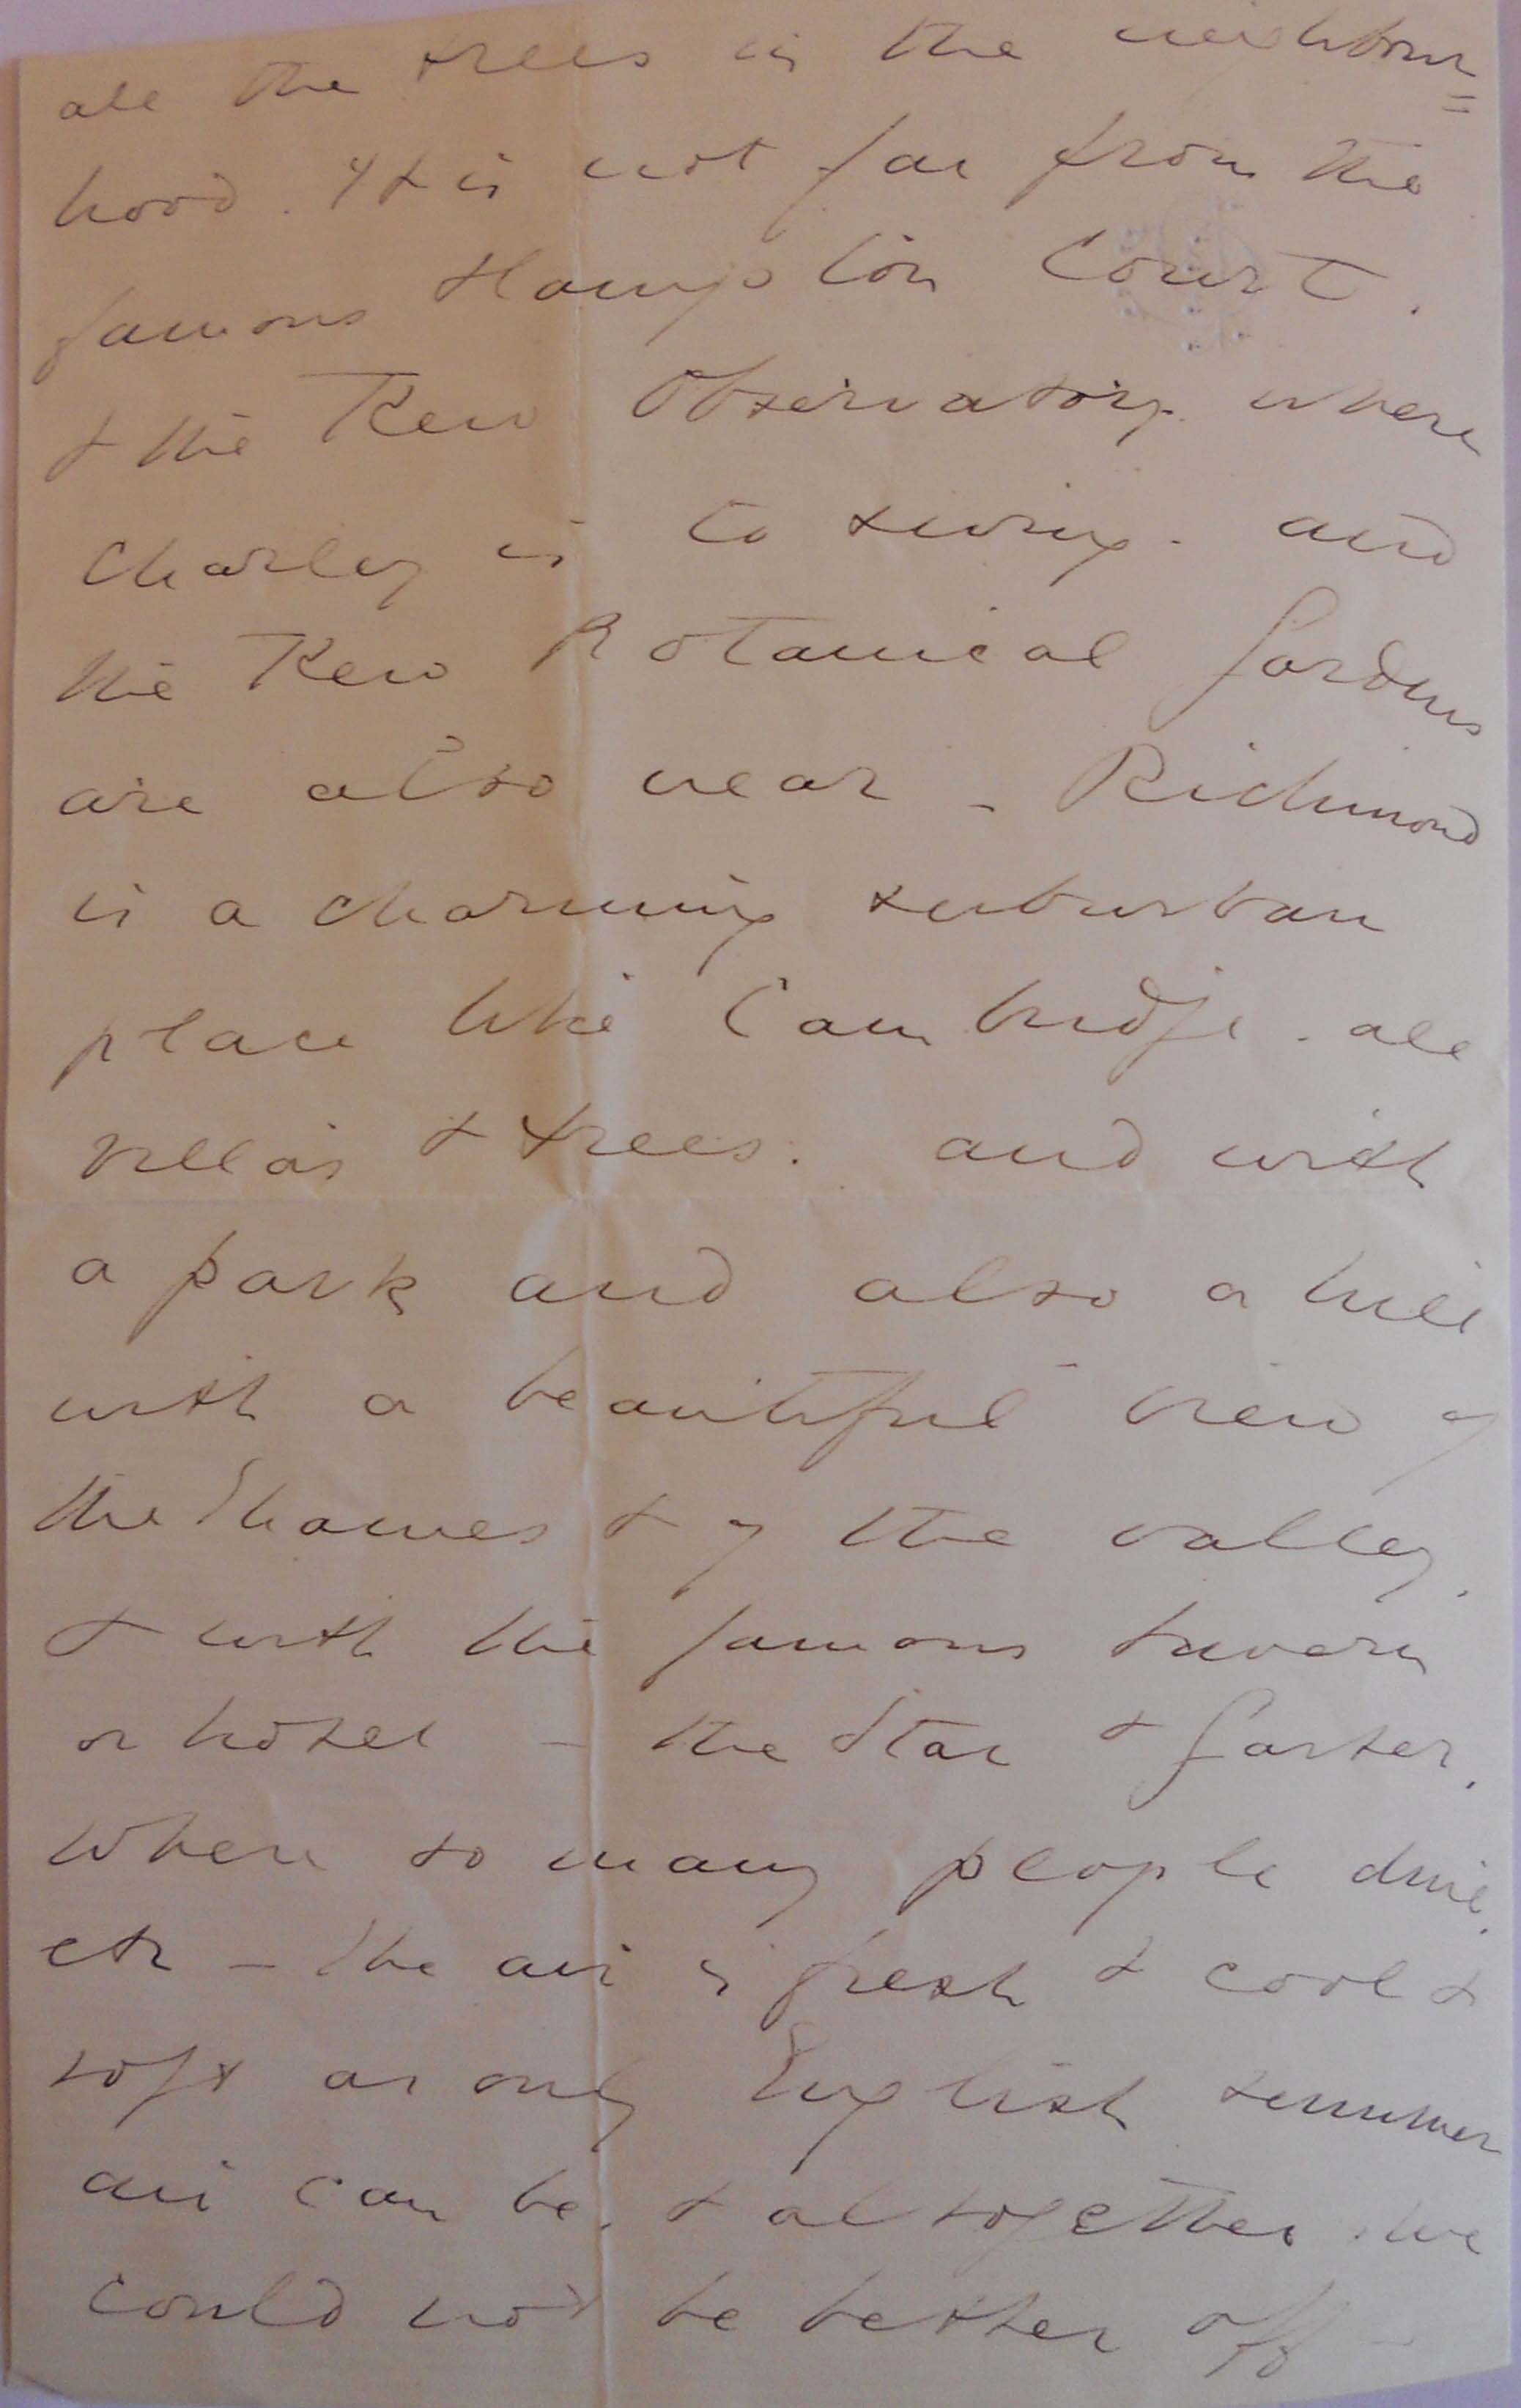 all the trees in the neighbour=
hood. It is not far from the
famous Hampton Court.
& the Kew Observatory where
Charley is to swing. and
the Kew Botanical Gardens
are also near - Richmond
is a charming suburban
place like Cambridge. all
villas & trees. and with
a park and also a hill
with a beautiful view of
the Thames & of the valley.
& with the famous tavern
or hotel - the Star & Garter.
where so many people dine.
etc - The air is fresh & cool &
soft as only English summer
air can be. & altogether we
could not be better off -